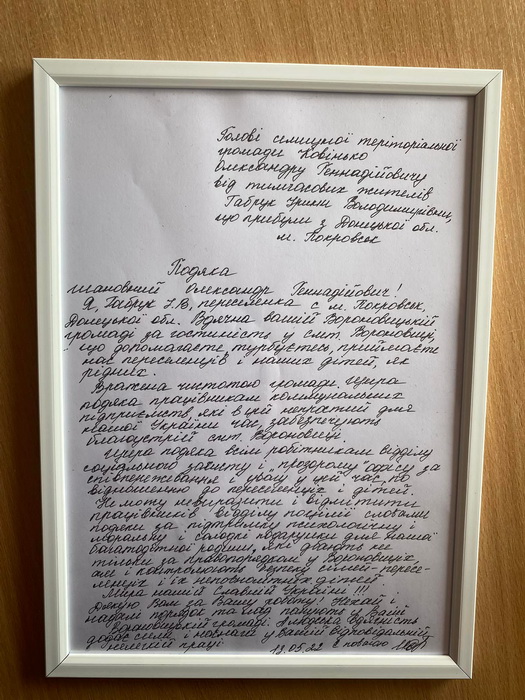 Голові селищної територіальної
громади Ковінько
Олександру Геннадійовичу
від тимчасових жителів
Габрук Ірини Володимирівни,
що прибули з Донецької обл.
м. Покровськ
Подяка
Шановний Олександр Геннадійович!
Я, Габрук І.В, переселенка с м. Покровськ,
Донецької обл. Вдячна вашій Вороновицькій
громаді за гостинність у смт. Вороновиці,
що допомагаєте, турбуєтесь, приймаєте
нас переселенців і наших дітей, як
рідних.
Вражена чистотою громади, щира
подяка працівникам коммунальних
підприємств, які в цій непростий для
нашої України час, забезпечують
благоустрій смт. Вороновиці.
Щира подяка всім робітникам відділу
соціального захисту і "прозорому" офісу за
співпереживання і увагу у цей час, по
відношенню до переселенців і дітей.
Не можу невиразити і відмітити
працівників відділу поліції словами
подяки за підтримку психологічну і
моральну і солодкі подарунки для нашої
багатодітної родини, які дбають не
тільки за правопорядком у Вороновицях,
але і контролюють безпеку сімей-пересе-
ленців і їх неповнолітніх дітей.
Мира нашій Славній Україні!!!
Дякую Вам за Вашу роботу! Нехай і
надалі порядок та лад панують у Вашій
Вороновицькій громаді. А людська вдячність
додає сили і наснаги у Вашій відповідальній
нелегкій праці
13.05.22 с повагою